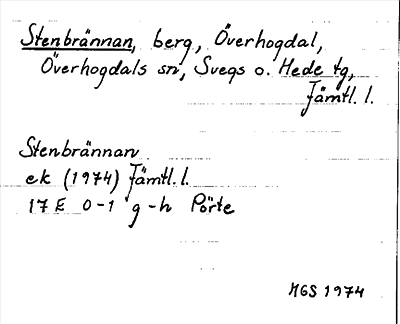 Stenbrännan, berg, Överhogdal,
Överhogdals sn, Svegs o. Hede tg,
Jämtl. l.
Stenbrännan
ek (1974) Jämtl. l.
17 E 0-1 g-h Pörte
MGS 1974